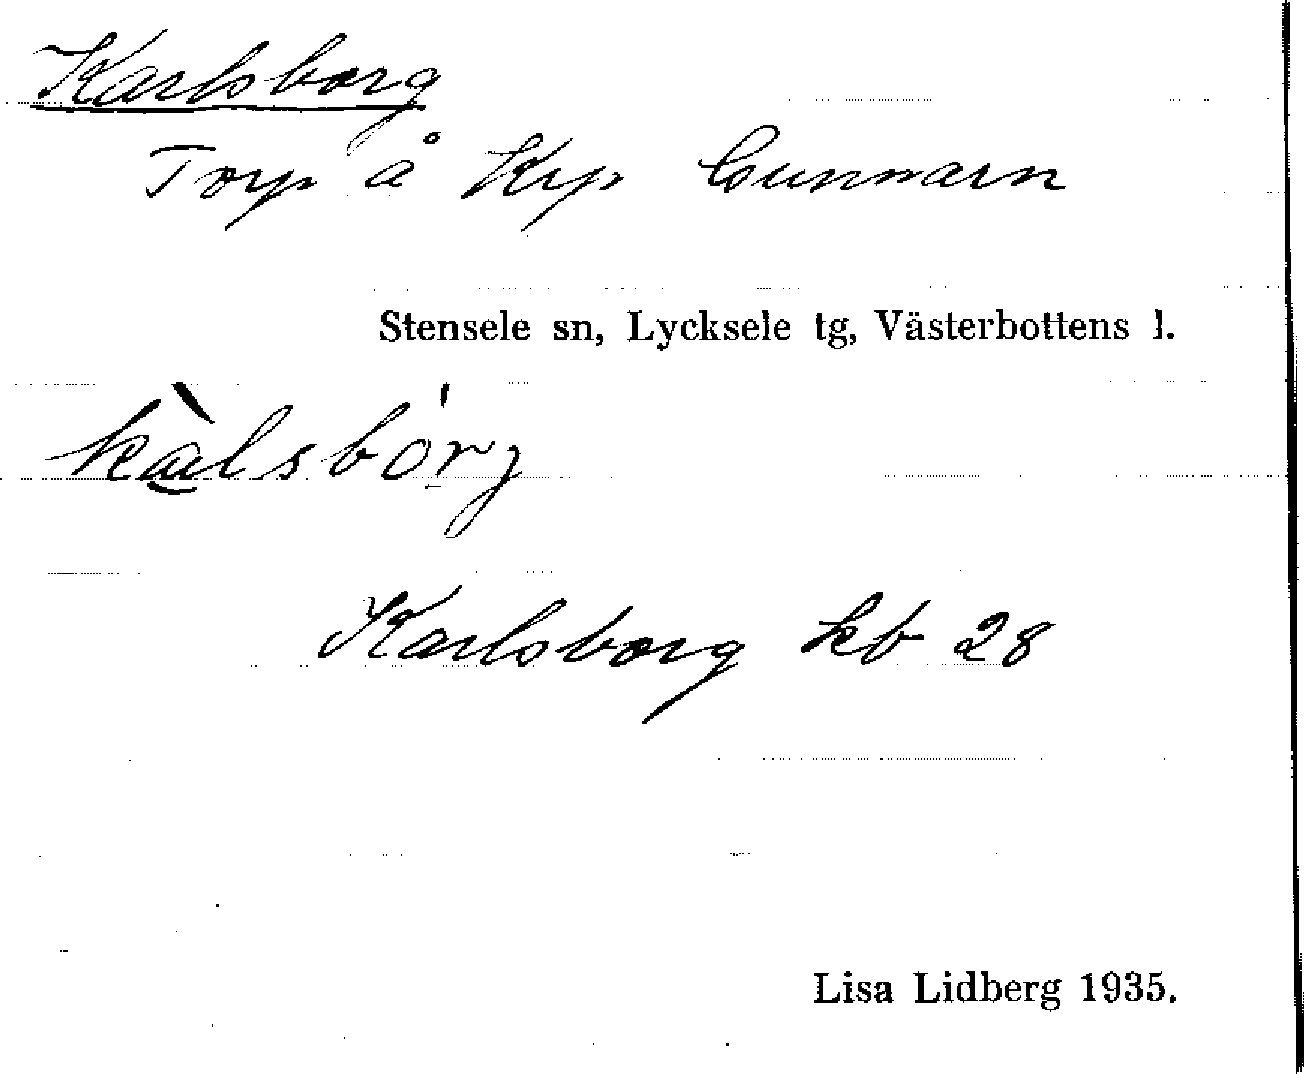 Karlsborg
Torp å Krp Gunnarn
Stensele sn, Lycksele tg, Västerbottens l.
kàlsbórj
Karlsborg kb 28
Lisa Lidberg 1935.